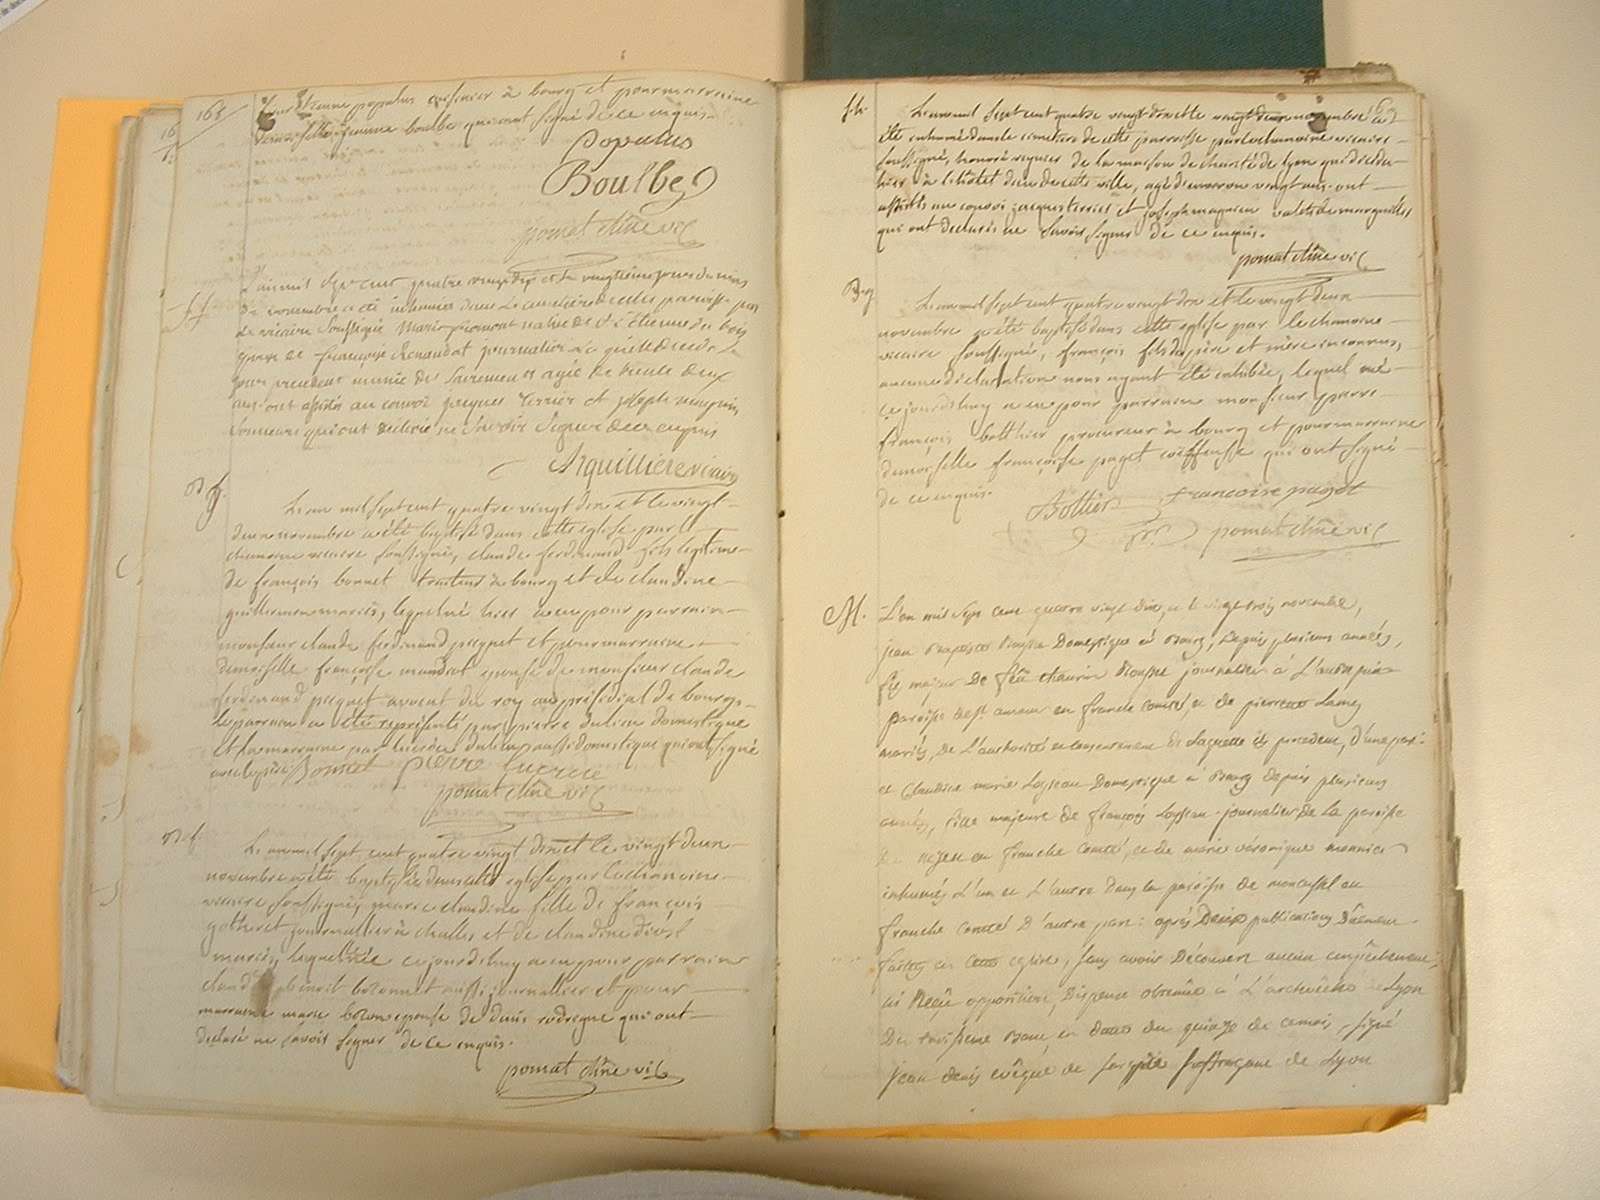 168
sieur Etienne populus cuisinier à bourg et pour marraine
demoiselle jeanne boulbe qui ont signé de ce enquis.
Populus
Boulbe
pomat chne vic
L'an mil sept cent quatre vingt dix et le vingtième jour du mois
de novembre a été inhumée dans le cimetière de cette paroisse par
le vicaire soussigné Marie native de St Etienne du bois
épouse de françoise Renaudat journalier
jour précédent munie des Sacremens agée de trente deux
ans ont assistés au convoi jacques terrier et joseph
sonneurs qui ont déclaré ne sçavoir signer de ce enquis
Arguilliere vicaire
B. g.
L'an mil sept cent quatre vingt dix et le vingt
deux novembre a été baptisé dans cette eglise par le
chanoine vicaire soussigné, claude ferdinand fils légitime
de françois bonnet traiteur à bourg et de claudine
guillermin mariés, lequel né hier a eu pour parrain
monsieur claude ferdinand piquet et pour marraine
demoiselle françoise mandrat epouse de monsieur claude
ferdinand piquet avocat du roy au présidial de bourg
le parrain a été représenté par pierre dulin domestique
et la marraine par lucrèce dulin aussi domestique qui ont signé
avec le père Bonnet pierre lucrece
pomat chne vic
B. f.
L'an mil sept cent quatre vingt dix et le vingt deux
novembre a été baptisée dans cette eglise par le chanoine
vicaire soussigné, marie claudine fille de françois
gotheret journallier à challes et de claudine divol
mariés, laquelle née ce jourdhuy a eu pour parrain
claude benoit bozonnet aussi journallier et pour
marraine marie bozon epouse de denis rodregue qui ont
declaré ne savoir signer de ce enquis.
pomat chne vic
169
S. h.
L'an mil sept cent quatre vingt dix et le vingt deux novembre a
été inhumé dans le cimetiere de cette parroisse par le chanoine vicaire
soussigné, honoré regnier de la maison de charité de lyon qui décéda
hier à l'hôtel dieu de cette ville, agé d'environ vingt ans. ont
assistés au convoi jacques terrier et joseph magnien valets de marguillier
qui ont declarés ne savoir signer de ce enquis.
pomat chne vic
B. g.
L'an mil sept cent quatre vingt dix et le vingt deux
novembre a été baptisé dans cette eglise par le chanoine
vicaire soussigné, françois fils de père et mère inconnus,
aucune déclaration nous ayant été exhibée, lequel né
ce jourdhuy a eu pour parrain monsieur pierre
françois bolthier procureur à bourg et pour marraine
demoiselle françoise paget coëffeuse qui ont signé
de ce enquis.
Bottier françoise paget
pomat chne vic
M.
L'an mil sept cent quatre vingt dix, et le vingt trois novembre,
jean baptiste Domestique à Bourg, depuis plusieurs années,
fils majeur de feu thaurin journalier à
paroisse de st amour en franche comté, et de pierrette Lamy
mariés, de l'authorité et consentement de Laquelle il procede, d'une part:
et Claudine marie Loyseau Domestique à Bourg depuis plusieurs
années, fille majeure de françois Loyseau journalier de la paroisse
de en franche comté, et de marie véronique monnier
inhumés l'un et l'autre dans la paroisse de en
franche comté d'autre part: après Deux publications Duement
faittes en cette eglise, sans avoir Découvert aucun empêchement,
ni Reçu opposition, Dispense obtenue à L'archevêché de Lyon
Du troisieme Banc, en datte du quinze de ce mois, signé
jean denis evêque de suffragant de Lyon